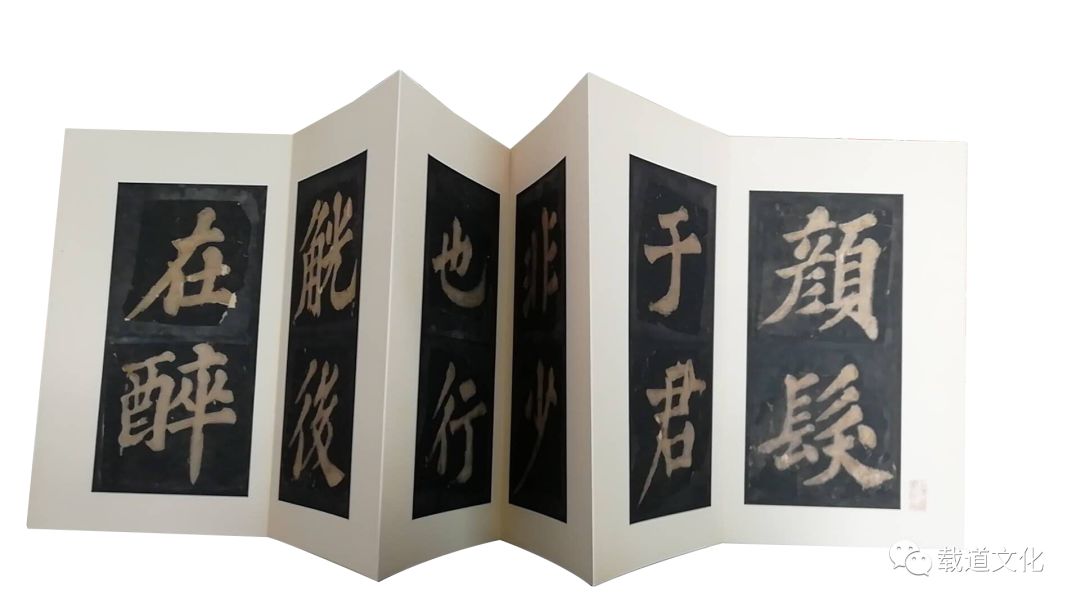 顏髮
于君
非少
也行
觥後
在醉
载道文化